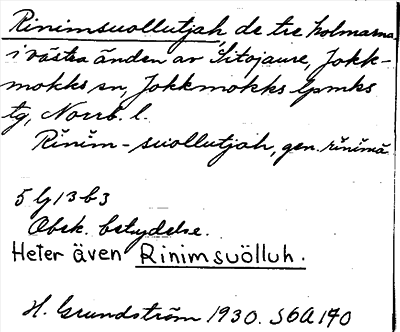 Rinimsuollutjah, de tre holmarna
i västra änden av Sitojaure, Jokk-
mokks sn, Jokkmokks lpmks
tg, Norrb. l.
Rĭnĭm-suollutjah, gen. rĭnĭmă
5 G 13 b 3
Obsk. betydelse.
Heter även Rinimsuölluh.
H. Grundström 1930. S6A 140